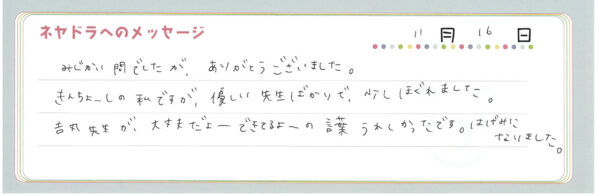 ネヤドラへのメッセージ
11月16日
みじかい間でしたが、ありがとうございました。
きんちょーしの私ですが、優しい先生ばかりで、少しほぐれました。
吉丸先生が、大丈夫だよーできてるよーの言葉うれしかったです。はげみに
なりました。